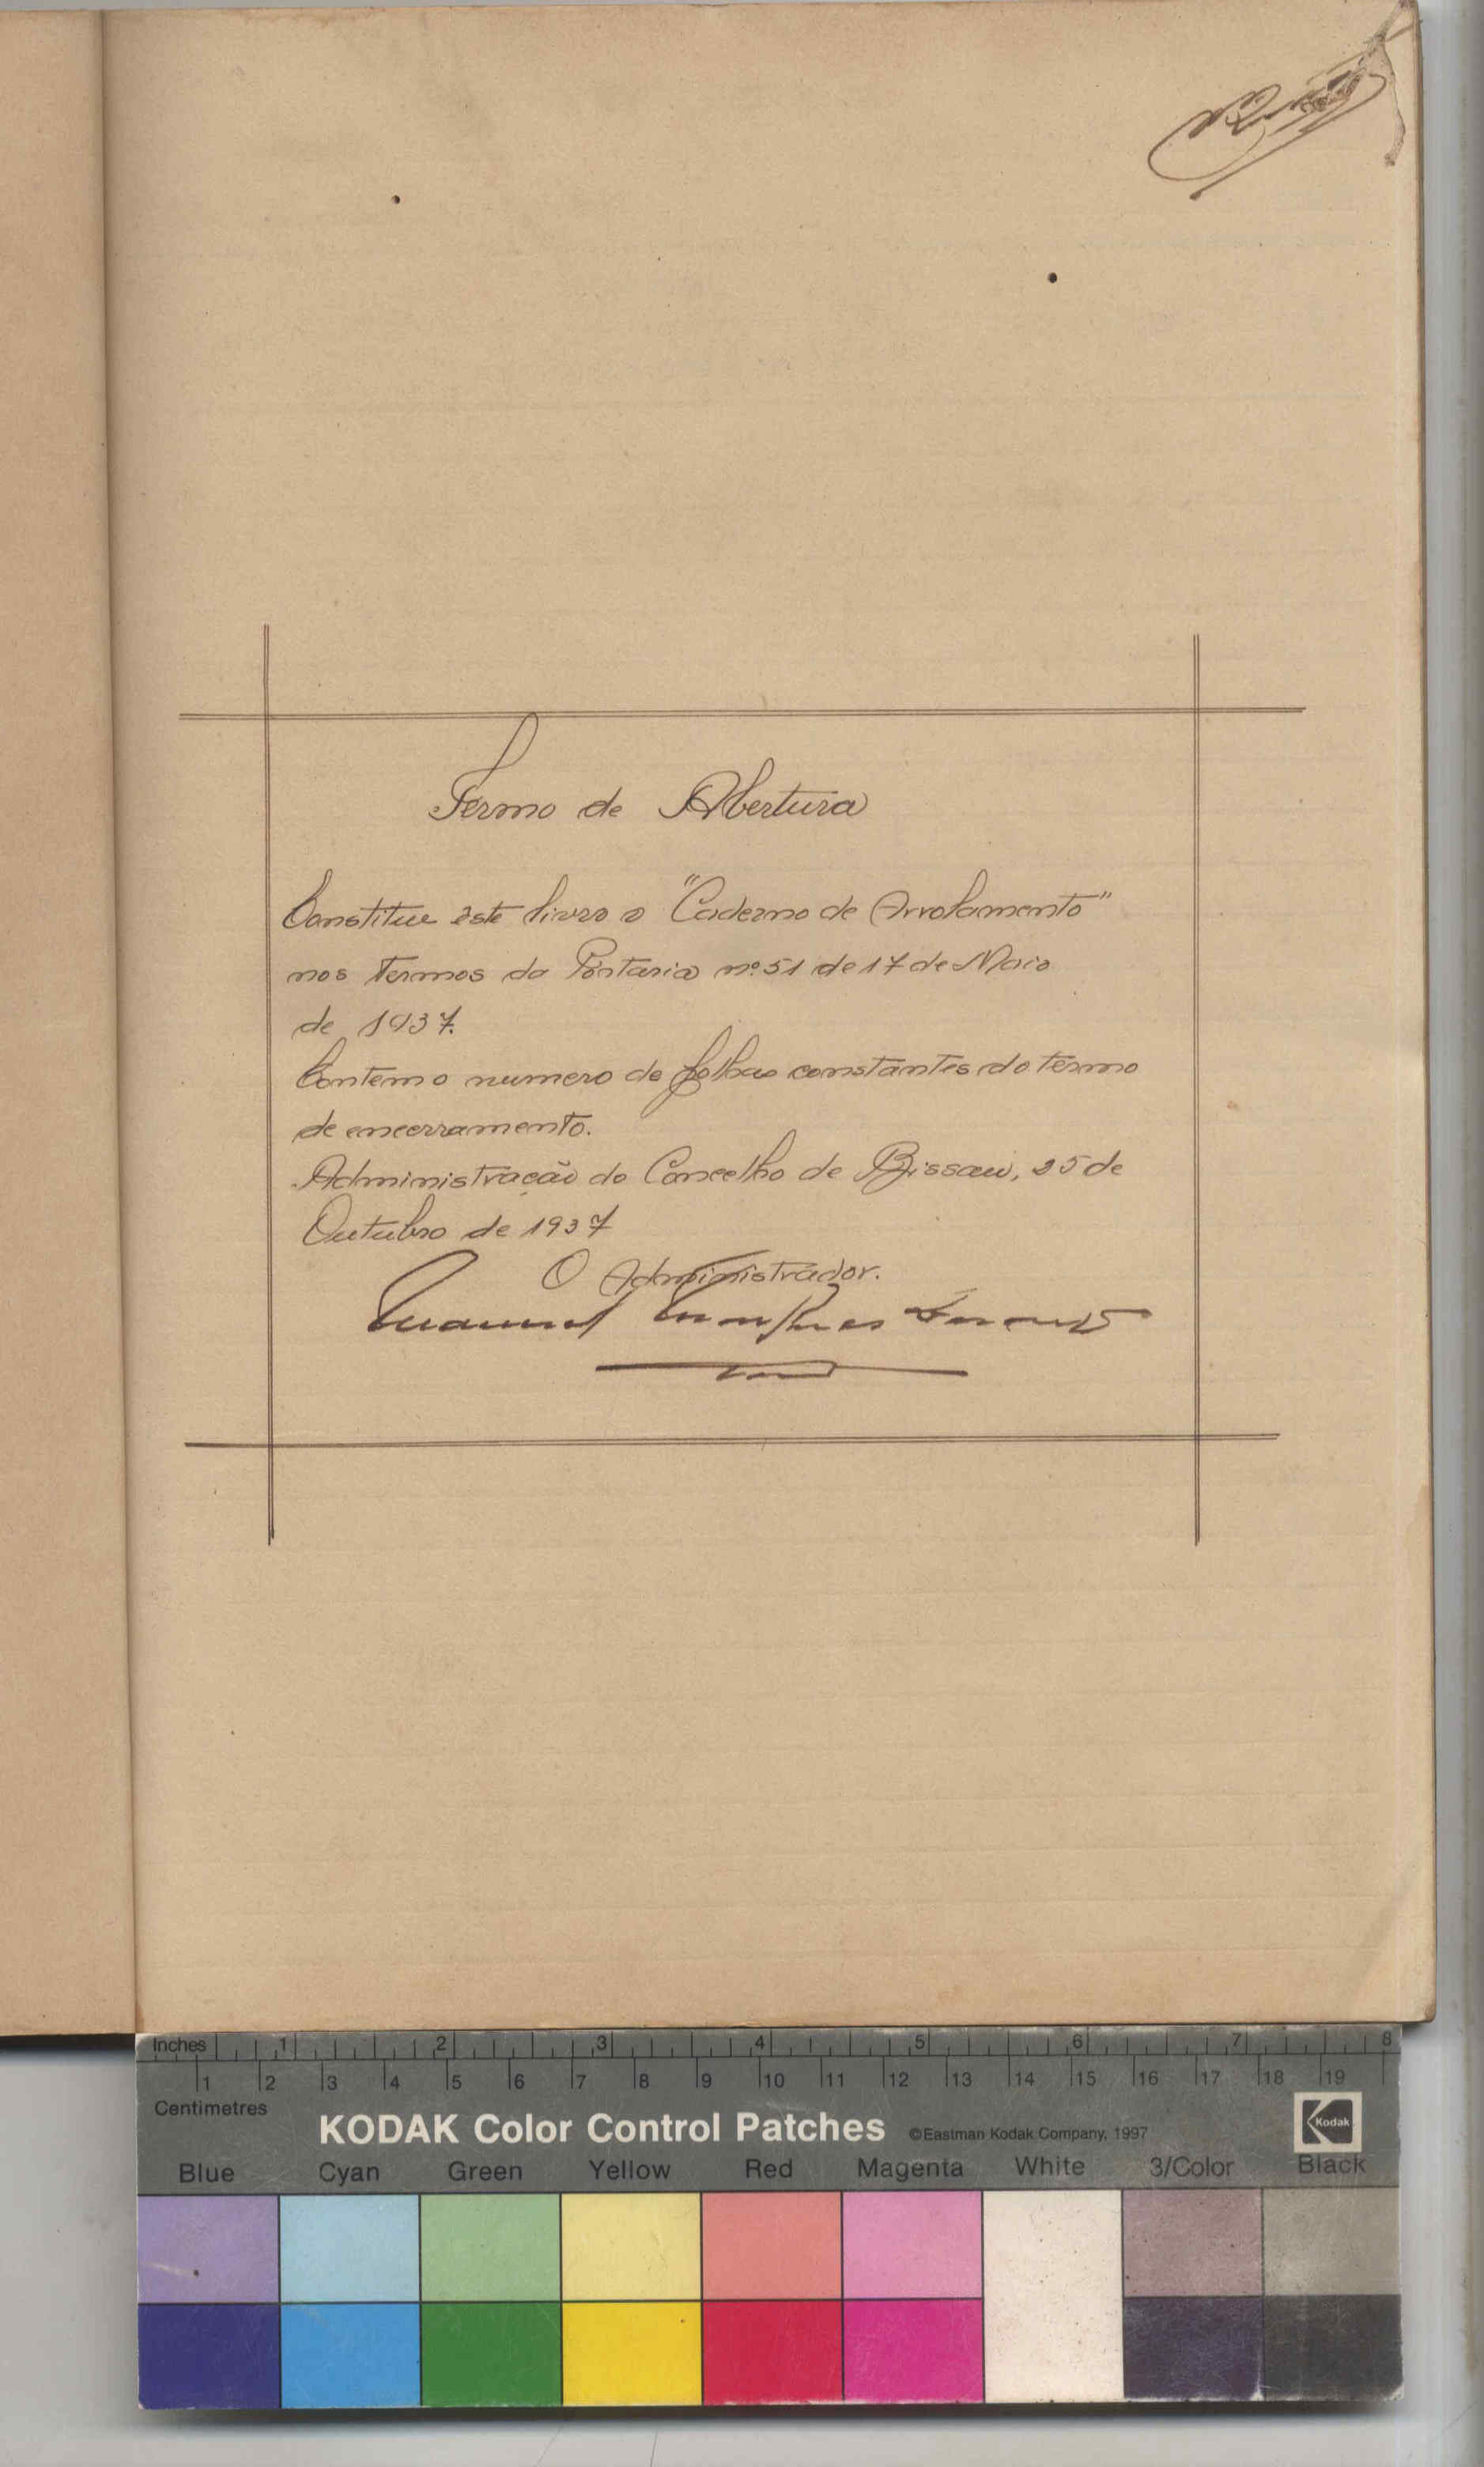 Termo de Abertura
Constitue êste livro o "Caderno de Arrolamento"
nos termos da Portaria nº 51 de 17 de Maio
de 1937.
Contem o numero de folhas constantes do têrmo
de encerramento.
Administração do Concelho de Bissau, 25 de
Outubro de 1937
O Administrador.
Manuel
Inches 1 2 3 4 5 6 7 8
1 2 3 4 5 6 7 8 9 10 11 12 13 14 15 16 17 18 19
Centimetres
KODAK Color Control Patches ©Eastman Kodak Company, 1997 Kodak
Blue Cyan Green Yellow Red Magenta White 3/Color Black